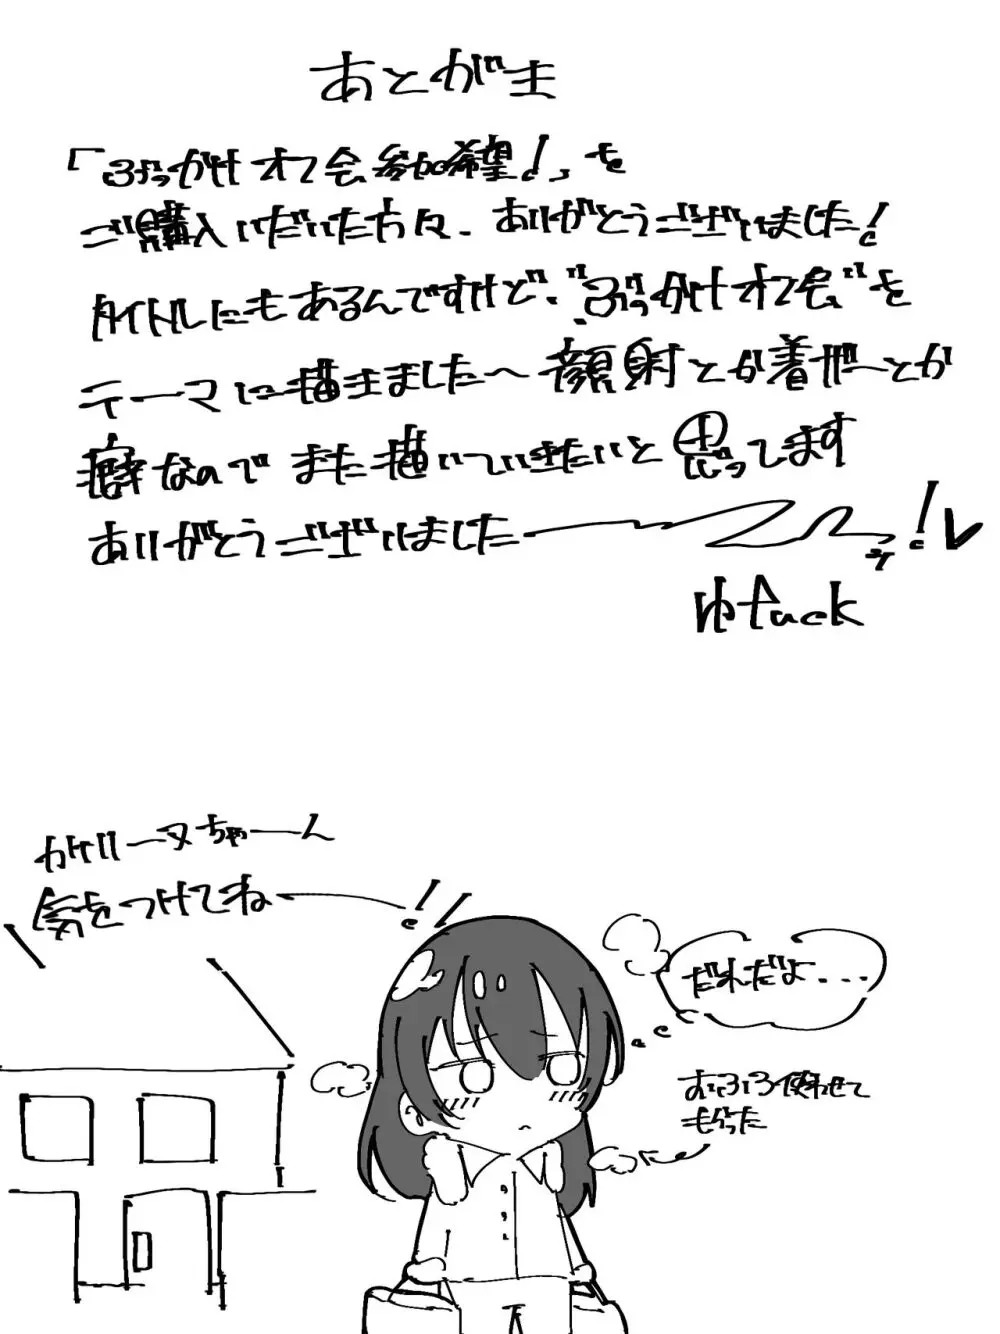 あとがき
「ぶっかけオフ会参加希望！」を
ご購入いただいた方々、ありがとうございました！
タイトルにもあるんですけど、"ぶっかけオフ会"を
テーマに描きました〜顔射とか着ザーとか
癖なのでまた描いていきたいと思ってします
ありがとうございました――！！
ゆtuck
かけリーヌちゃーん
気をつけてね――！！
だれだよ...
おふろ使わせて
もらった